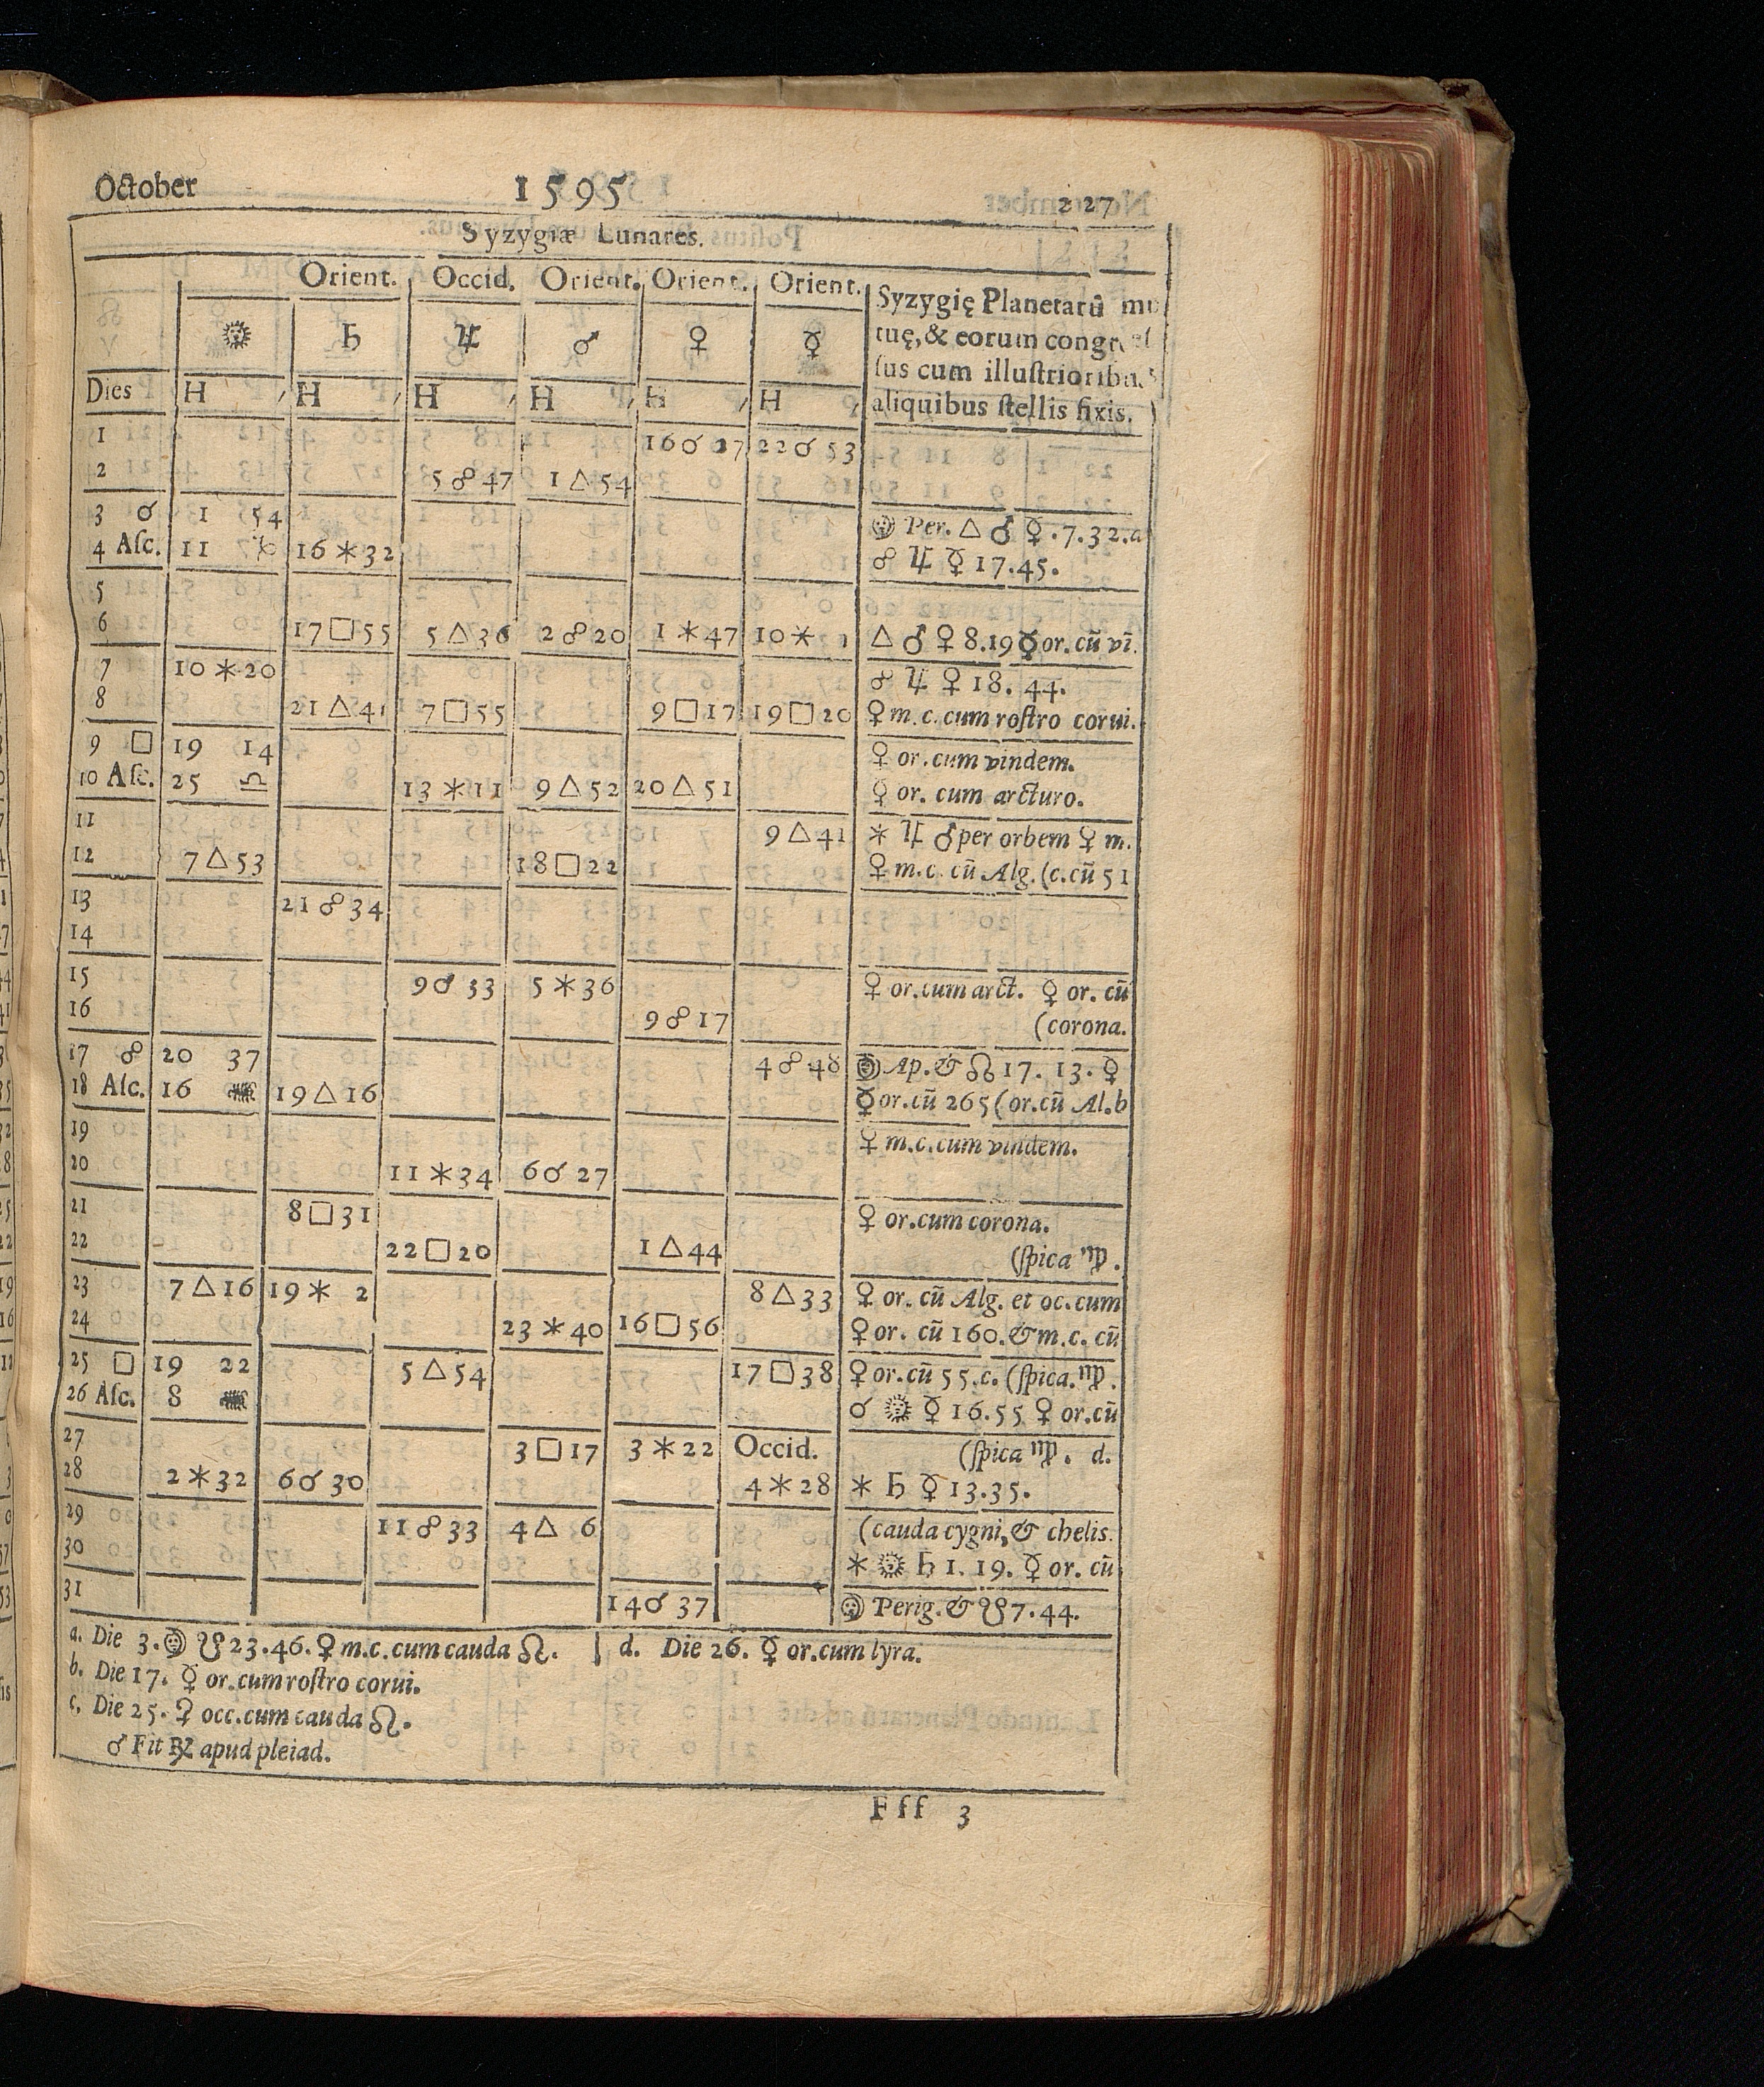 October 1595 227
Syzygiæ Lunares.
Orient. Occid. Orient. Orient. Orient.
Syzygię Planetarū mu
☉ ♄ ♃ ♂ ♀ ☿
tuę, & eorum congreſ
ſus cum illuſtrioribus
Dies H ′ H ′ H ′ H ′ H ′ H ′
aliquibus ſtellis fixis.
1 16 ☌ 27 22 ☌ 53
2 5 ☍ 47 1 △ 54
3 ☌ 1 54 ☽ Per. △ ♂ ☿. 7. 32. a
4 Aſc. 11 16 ⚹ 32 ☍ ♃ ☿ 17. 45.
5
6 17 □ 55 5 △ 36 2 ☍ 20 1 ⚹ 47 10 ⚹ 1 △ ♂ ♀ 8. 19 ☿ or. cū vī.
7 10 ⚹ 20 ☍ ♃ ♀ 18. 44.
8 21 △ 41 7 □ 55 9 □ 17 19 □ 20 ♀ m. c. cum roſtro corui.
9 □ 19 14 ♀ or. cum vindem.
10 Aſc. 25 ♎ 13 ⚹ 11 9 △ 52 20 △ 51 ☿ or. cum arcturo.
11 9 △ 41 ⚹ ♃ ♂ per orbem ☿ m.
12 7 △ 53 18 □ 22 ♀ m. c. cū Alg. (c. cū 51
13 21 ☍ 34
14
15 9 ☌ 33 5 ⚹ 36 ♀ or. cum arct. ☿ or. cū
16 9 ☍ 17 (corona.
17 ☍ 20 37 4 ☍ 48 ☽ Ap. & ☊ 17. 13. ☿
18 Aſc. 16 ♒ 19 △ 16 ☿ or. cū 265 (or. cū Al. b
19 ☿ m. c. cum vindem.
20 11 ⚹ 34 6 ☌ 27
21 8 □ 31 ♀ or. cum corona.
22 22 □ 20 1 △ 44 (ſpica ♍.
23 7 △ 16 19 ⚹ 2 8 △ 33 ♀ or. cū Alg. et oc. cum
24 23 ⚹ 40 16 □ 56 ♀ or. cū 160. & m. c. cū
25 □ 19 22 5 △ 54 17 □ 38 ♀ or. cū 55. c. (ſpica. ♍.
26 Aſc. 8 ♒ ☌ ☉ ☿ 16. 55 ♀ or. cū
27 3 □ 17 3 ⚹ 22 Occid. (ſpica ♍. d.
28 2 ⚹ 32 6 ☌ 30 4 ⚹ 28 ⚹ ♄ ☿ 13. 35.
29 11 ☍ 33 4 △ 6 (cauda cygni, & chelis.
30 ⚹ ☉ ♄ 1. 19. ☿ or. cū
31 14 ☌ 37 ☽ Perig. & ☋ 7. 44.
a. Die 3. ☽ ☋ 23. 46. ♀ m. c. cum cauda ♌. d. Die 26. ☿ or. cum lyra.
b. Die 17. ☿ or. cum roſtro corui.
c. Die 25. ♀ occ. cum cauda ♌.
♂ Fit ℞ apud pleiad.
Fff 3